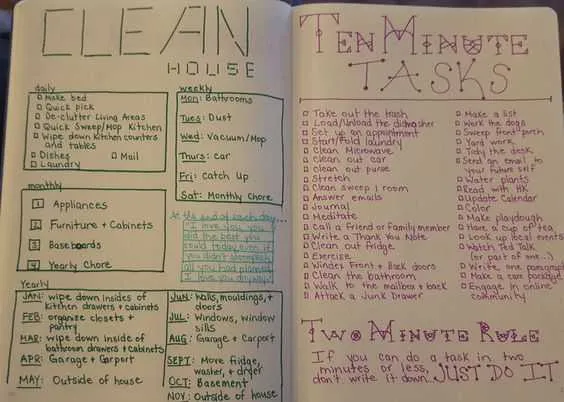 CLEAN
HOUSE
daily
Make bed
Quick pick
De-clutter Living Areas
Quick Sweep/Mop Kitchen
Wipe down Kitchen counters
and tables
Dishes
Mail
Laundry
weekly
Mon: Bathrooms
Tues: Dust
Wed: Vacuum/Mop
Thurs: car
Fri: Catch Up
Sat: Monthly Chore
monthly
1 Appliances
2 Furniture + Cabinets
3 Baseboards
4 Yearly Chore
At the end of each day...
"I love you, you
did the best you
could today even if
you didn't accomplish
all you had planned.
I love you anyway."
Yearly
JAN: wipe down insides of
kitchen drawers + cabinets
FEB: organize closets +
pantry
MAR: wipe down inside of
bathroom drawers + cabinets
APR: Garage + Carport
MAY: Outside of house
JUN: Walls, mouldings, +
doors
JUL: Windows, window
sills
AUG: Garage + Carport
SEPT: Move fridge,
washer, + dryer
OCT: Basement
NOV: Outside of house
TEN MINUTE
TASKS
Take out the trash
Load/Unload the dishwasher
Set up an appointment
Start/Fold laundry
Clean Microwave
Clean out car
Clean out purse
Stretch
Clean sweep 1 room
Answer emails
Journal
Meditate
Call a friend or family member
Write a Thank You Note
Clean out fridge
Exercise
Windex Front + Back doors
Clean the bathroom
Walk to the mailbox + back
Attack a Junk Drawer
Make a list
Work the dogs
Sweep front porch
Yard work
Tidy the desk
Send an email to
your future self
Water plants
Read with HK
Update Calendar
Color
Make playdough
Have a cup of tea
Look up local events
Watch Ted Talk
(or part of one...)
Write one paragraph
Make a care package
Engage in online
community
TWO MINUTE RULE
If you can do a task in two
minutes or less,
don't write it down... JUST DO IT